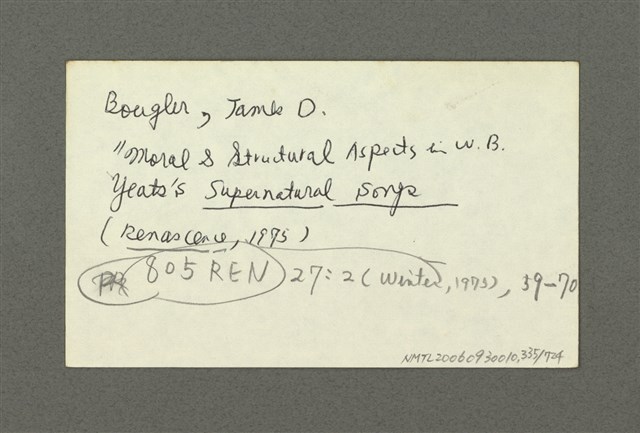 Bougler, James D.
"Moral & Structural Aspects in W.B.
Yeats's Supernatural Songs
(Renascence, 1975)
805 REN 27:2 (Winter, 1975), 59-70
NMTL20060930010,335/724